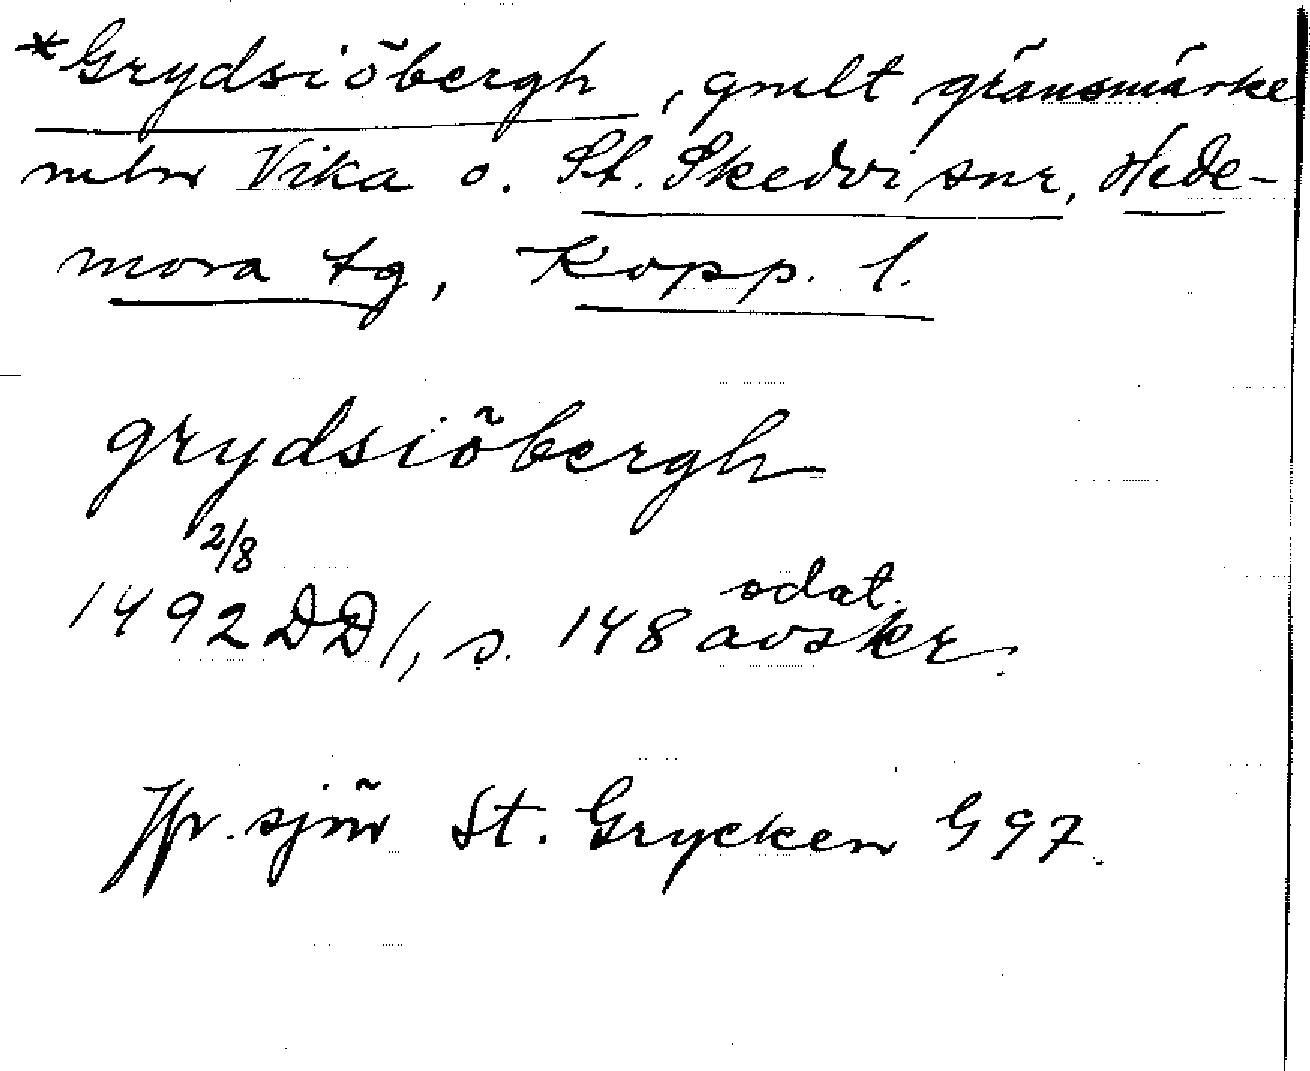 *Grydsiöbergh, gmlt gränsmärke
mln Vika o. St. Skedvi snr, Hede-
mora tg, Kopp. l.
grydsiöbergh
2/8
1492 DD 1, s. 148 odat. avskr.
Jfr. sjön St. Grycken G 97.